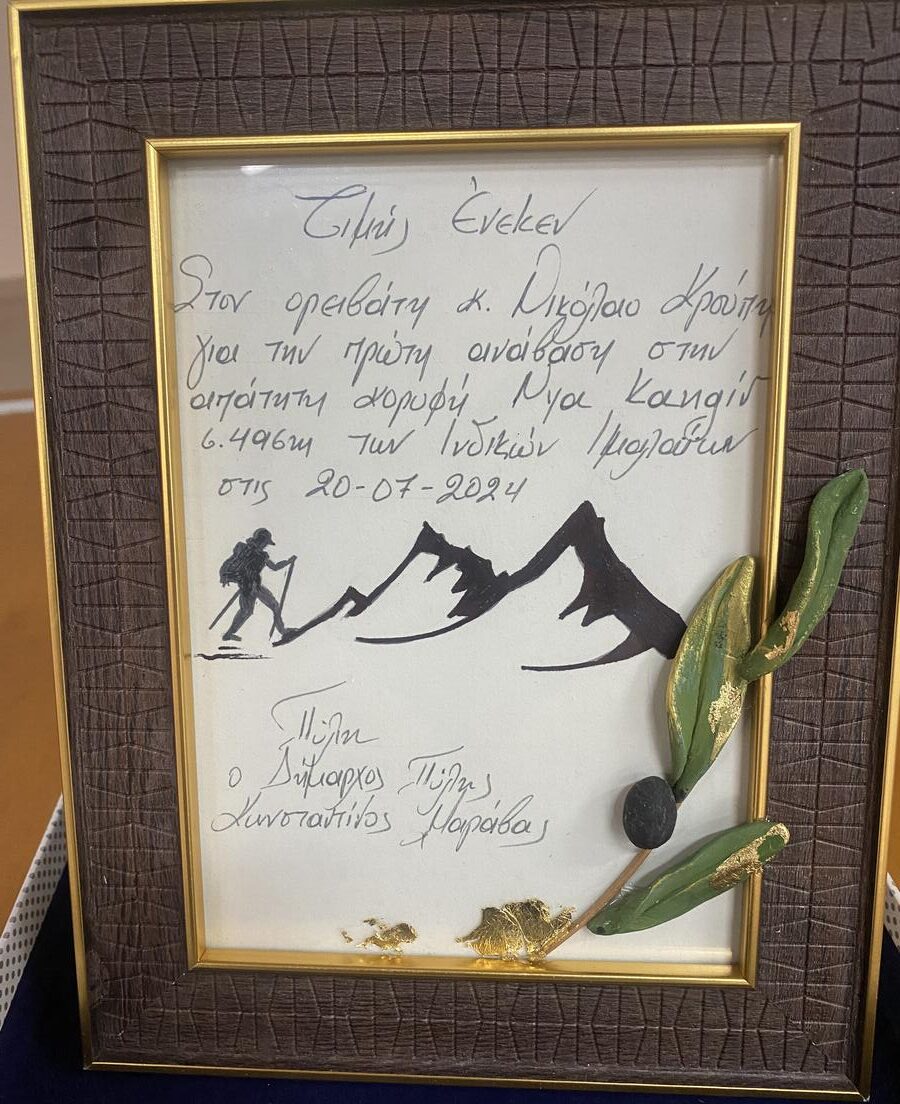 Τιμής Ένεκεν
Στον ορειβάτη κ. Νικόλαο Κρούπη
για την πρώτη ανάβαση στην
απάτητη κορυφή Νya Kangri
6.496m των Ινδικών Ιμαλαΐων
στις 20-07-2024
Πύλη
ο Δήμαρχος Πύλης
Κωνσταντίνος Μαράβας